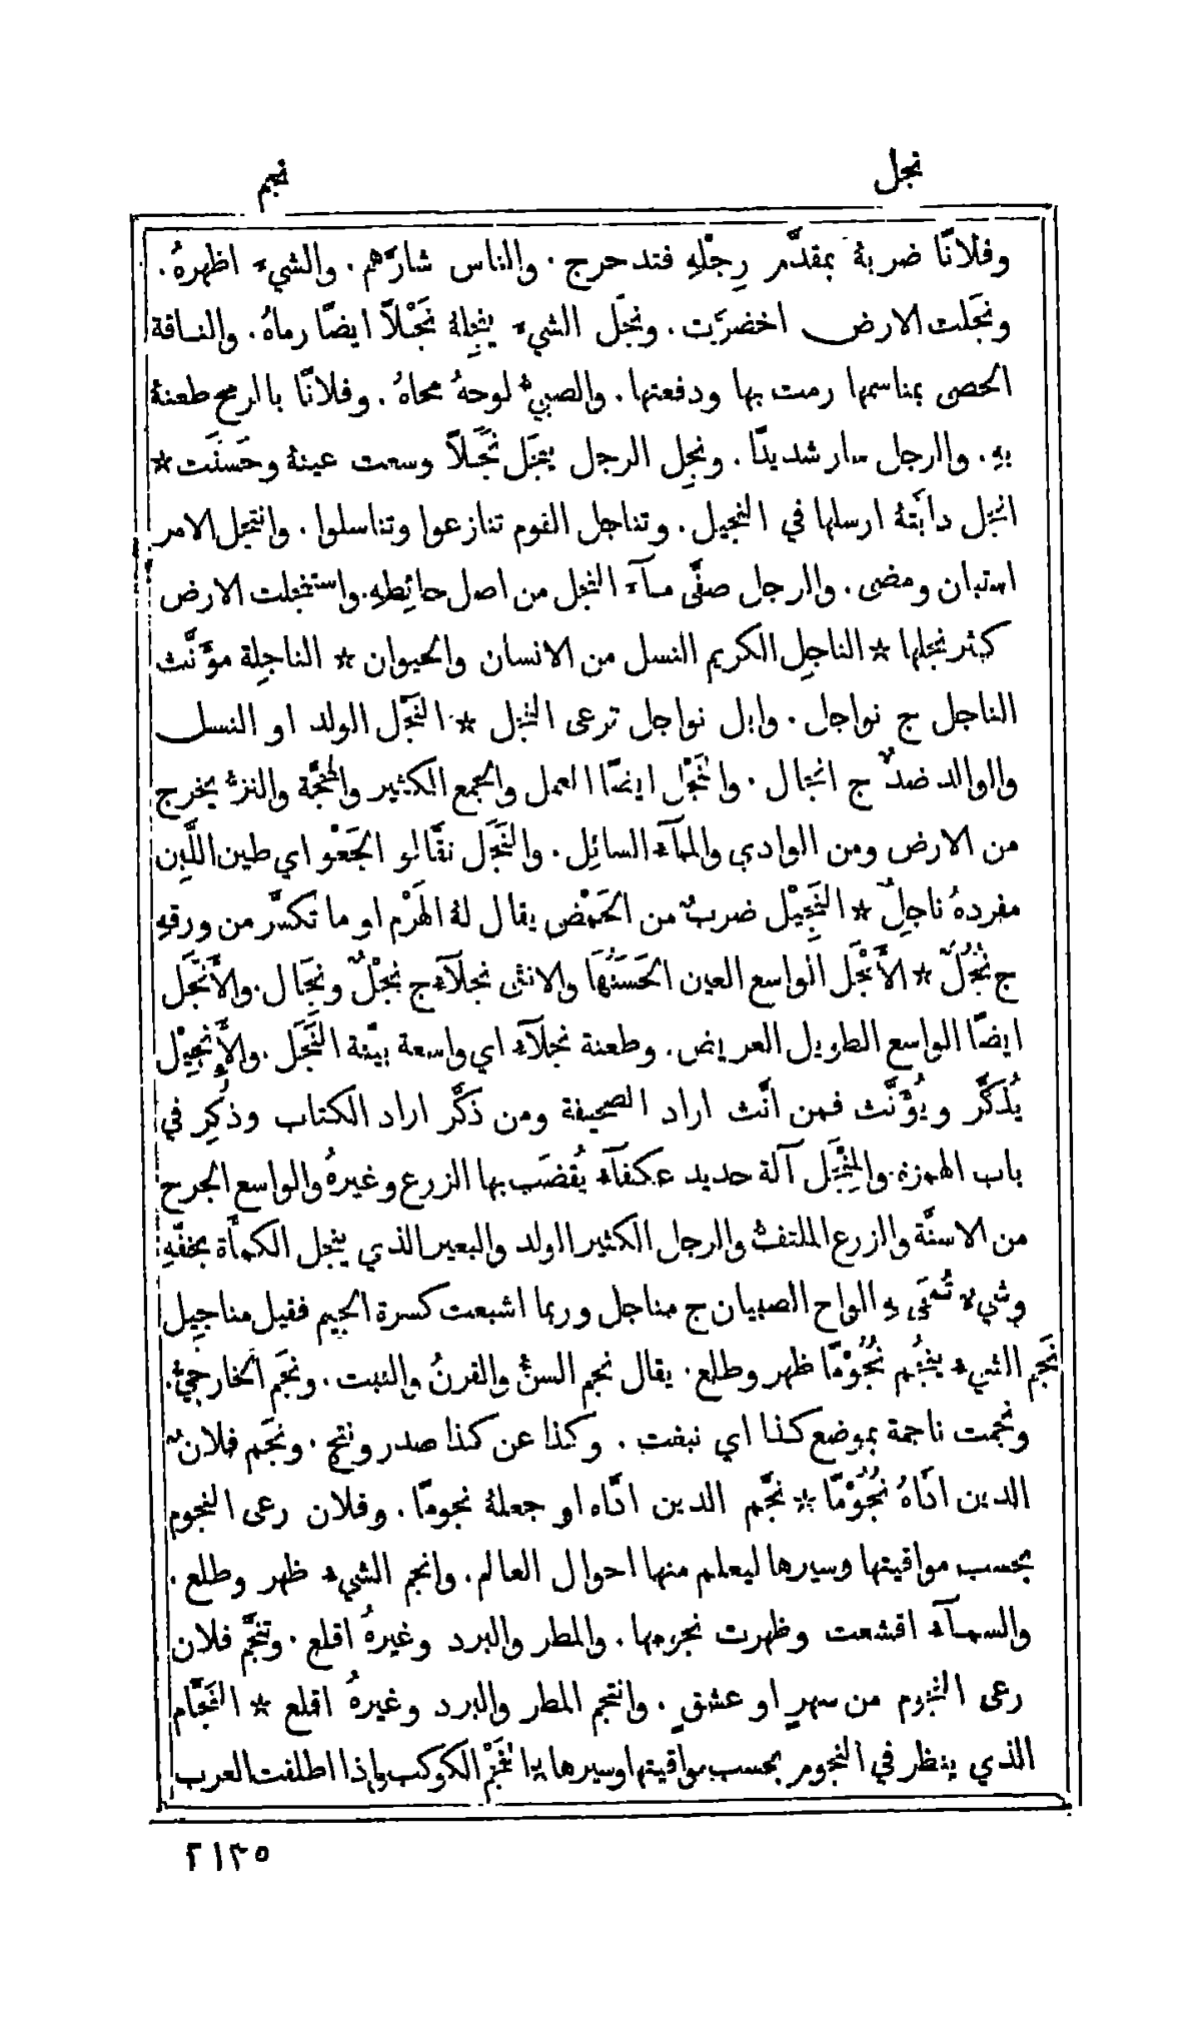 نجل
نجم
وفلانًا ضربهُ بمقدَّم رِجْلِهِ فتدحرج . والناس شارَّهم . والشيء اظهرهُ .
ونَجَلت الارض اخضرَّت . ونَجَل الشيء ينجُلهُ نَجْلًا ايضًا رماهُ . والناقة
الحصى بمناسمها رمت بها ودفعتها . والصبيُّ لوحهُ محاهُ . وفلانًا بالرمح طعنهُ
بهِ . والرجل سار شديدًا . ونجِل الرجل ينجَل نَجَلًا وسعت عينهُ وحَسُنَت *
انجل دابَّتهُ ارسلها في النجيل . وتناجل القوم تنازعوا وتناسلوا . وانتجل الامر
استبان ومضى . والرجل صفَّى مآء النجل من اصل حائِطهِ . واستنجلت الارض
كثر نجلها * الناجِل الكريم النسل من الانسان والحيوان * الناجِلة مؤنَّث
الناجل ج نواجل . وابل نواجل ترعى النجل * النَّجْل الولد او النسل
والوالد ضدٌّ ج انجال . والنَّجْل ايضًا العمل والجمع الكثير والمَحَجَّة والنزُّ يخرج
من الارض ومن الوادي والمآء السائِل . والنَّجَل نقَّالو الجَعْو اي طين اللَّبِن
مفردهُ ناجِلٌ * النَّجِيْل ضربٌ من الحَمْض يقال لهُ الهَرْم او ما تكسَّر من ورقهِ
ج نُجُلٌ * الأَنْجَل الواسع العين الحَسَنُهَا والانثى نجلآء ج نُجْلٌ ونِجَال . والأَنْجَل
ايضًا الواسع الطويل العريض . وطعنة نجلآء اي واسعة بيِّنة النَّجَل . والأَنْجِيْل
يُذكَّر ويُؤَنَّث فمن انَّث اراد الصحيفة ومن ذكَّر اراد الكتاب وذُكِر في
باب الهمزة . والمِنْجَل آلة حديد عكفآء يُقضَب بها الزرع وغيرهُ والواسع الجرح
من الاسنَّة والزرع الملتفُّ والرجل الكثير الولد والبعير الذي ينجل الكمأَة بخفِّهِ
وشيء تُمحَى بهِ الواح الصبيان ج مناجل وربما اشبعت كسرة الجيم فقيل مناجِيل
نَجَم الشيء ينجُم نُجُوْمًا ظهر وطلع . يقال نجم السنُّ والقرنُ والنبت . ونجَم الخارجيُّ .
ونجمت ناجمة بموضع كذا اي نبغت . وكذا عن كذا صدر ونتج . ونَجَم فلانٌ
الدين ادَّاهُ نُجُوْمًا * نجَّم الدين ادَّاه او جعلهُ نجومًا . وفلان رعى النجوم
بحسب مواقيتها وسيرها ليعلم منها احوال العالم . وانجم الشيء ظهر وطلع .
والسمآء اقشعت وظهرت نجومها . والمطر والبرد وغيرهُ اقلع . وتنجَّم فلان
رعى النجوم من سهرٍ او عشقٍ . وانتجم المطر والبرد وغيرهُ اقلع * النَّجَّام
الذي ينظر في النجوم بحسب مواقيتها وسيرها * النَّجْم الكوكب واذا اطلقت العرب
٢١٣٥